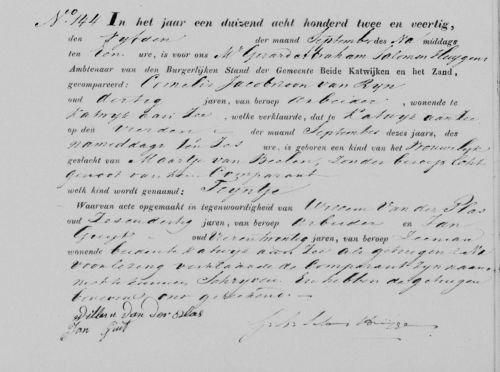 N.º 144 In het jaar een duizend acht honderd twee en veertig,
den vyfden der maand September des Na middags
ten Een ure, is voor ons Mr Gerard Abraham Salomon
Ambtenaar van den Burgerlijken Stand der Gemeente Beide Katwijken en het Zand,
gecompareerd: Cornelis Jacobszoon van Ryn
oud dertig jaren, van beroep Arbeider, wonende te
Katwyk aan Zee, welke verklaarde, dat te Katwyk aan Zee
op den vierden der maand September dezes jaars, des
namiddags ten Zes ure, is geboren een kind van het Vrouwelyk
geslacht van Maartje van Beelen, zonder beroep Echt-
genoot van den Comparant
welk kind wordt genaamd: Teyntje
Waarvan acte opgemaakt in tegenwoordigheid van Willem van der Plas
oud Zesendertig jaren, van beroep Arbeider en Jan
Guyt oud Vierentwintig jaren, van beroep Zeeman
wonende beide te Katwyk aan Zee als getuigen. Na
voorlezing verklaarde de Comparant zyn naam
niet te kunnen Schryven. En hebben de getuigen
benevens ons geteekend
Willem van der Plas
Jan Guit